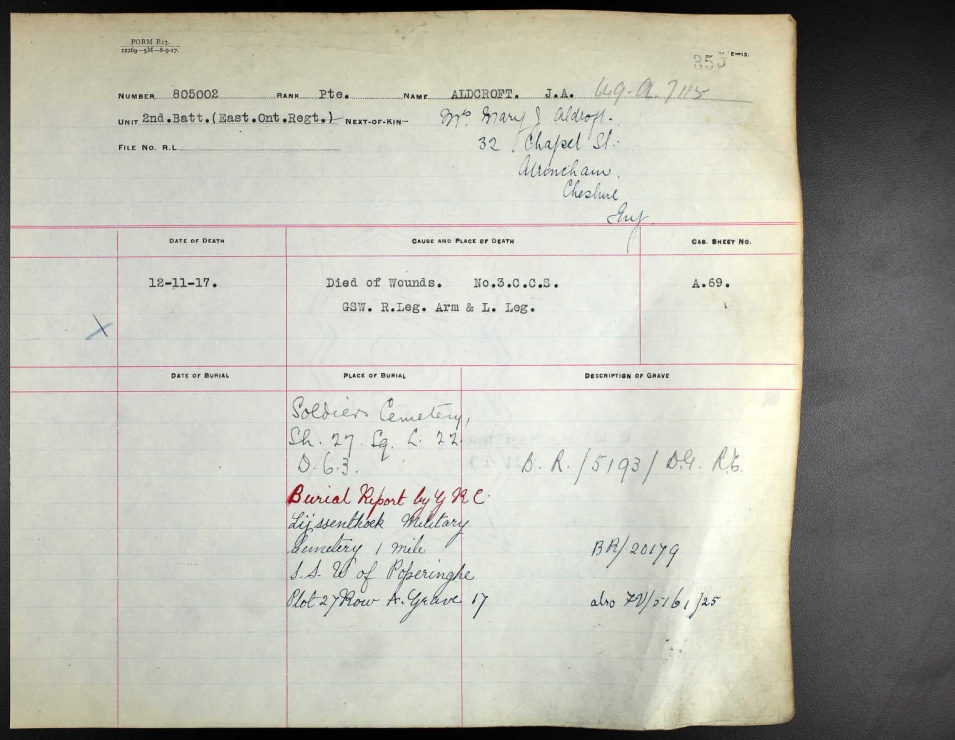 FORM E13.
12269—5M—8-9-17.
E—13.
353
NUMBER 805002 RANK Pte. NAME ALDCROFT. J.A. 649-A.7115
UNIT 2nd.Batt.(East.Ont.Regt.) NEXT-OF-KIN— Mrs Mary J Aldcroft.
FILE NO. R.L. 32 Chapel St.
Altrincham.
Cheshire
Eng.
DATE OF DEATH CAUSE AND PLACE OF DEATH CAS. SHEET NO.
12-11-17. Died of Wounds. No.3.C.C.S. A.69.
GSW. R.Leg. Arm & L. Leg.
X
DATE OF BURIAL PLACE OF BURIAL DESCRIPTION OF GRAVE
Soldiers Cemetery,
Sh. 27. Sq. L. 22.
D. 6.3. B. R./5193/ D.G. R.E.
Burial Report by G R C.
Lijssenthoek Military
Cemetery 1 mile BR/20179
S.S. W of Poperinghe
Plot 27 Row A. Grave 17 also FV/5161/25